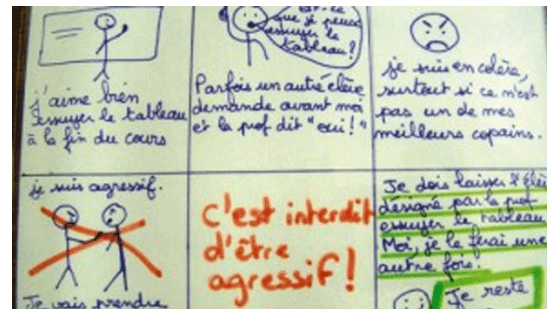 j'aime bien
essuyer le tableau
à la fin du cours
que je peux
essuyer le
tableau?
Parfois un autre élève
demande avant moi
et la prof dit "oui!"
je suis en colère,
surtout si ce n'est
pas un de mes
meilleurs copains.
je suis agressif.
Je vais prendre
C'est interdit
d'être
agressif!
Je dois laisser l'élève
désigné par la prof
essuyer le tableau
Moi, je le ferai une
autre fois.
Je reste